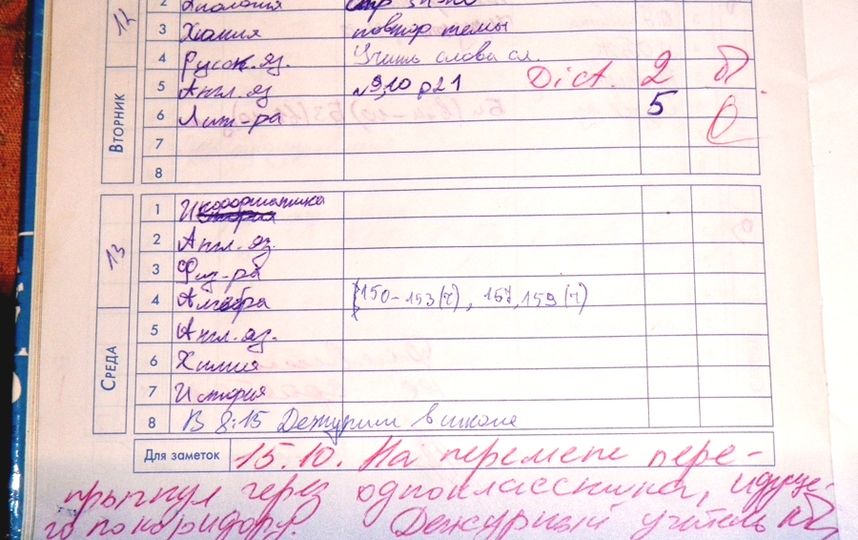 12
2 Биология стр
3 Химия повтор темы
4 Русск. яз. Учить слова сл.
5 Англ. яз №9,10 р 21 Dict. 2
6 Лит-ра 5
7
8
ВТОРНИК
13
1 Информатика
2 Англ. яз.
3 Физ-ра
4 Алгебра 150-153(г), 157, 159(г)
5 Англ. яз.
6 Химия
7 История
8 В 8:15 Дежурим в школе
СРЕДА
Для заметок 15.10. На перемене пере-
прыгнул через одноклассника, идуще-
го по коридору. Дежурный учитель